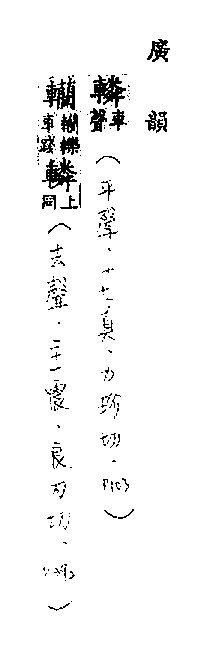 廣韻
轔車聲(平聲.十七真.力珍切.P103)
轥轥轢車踐轔上同(去聲.二十一震.良刃切.)